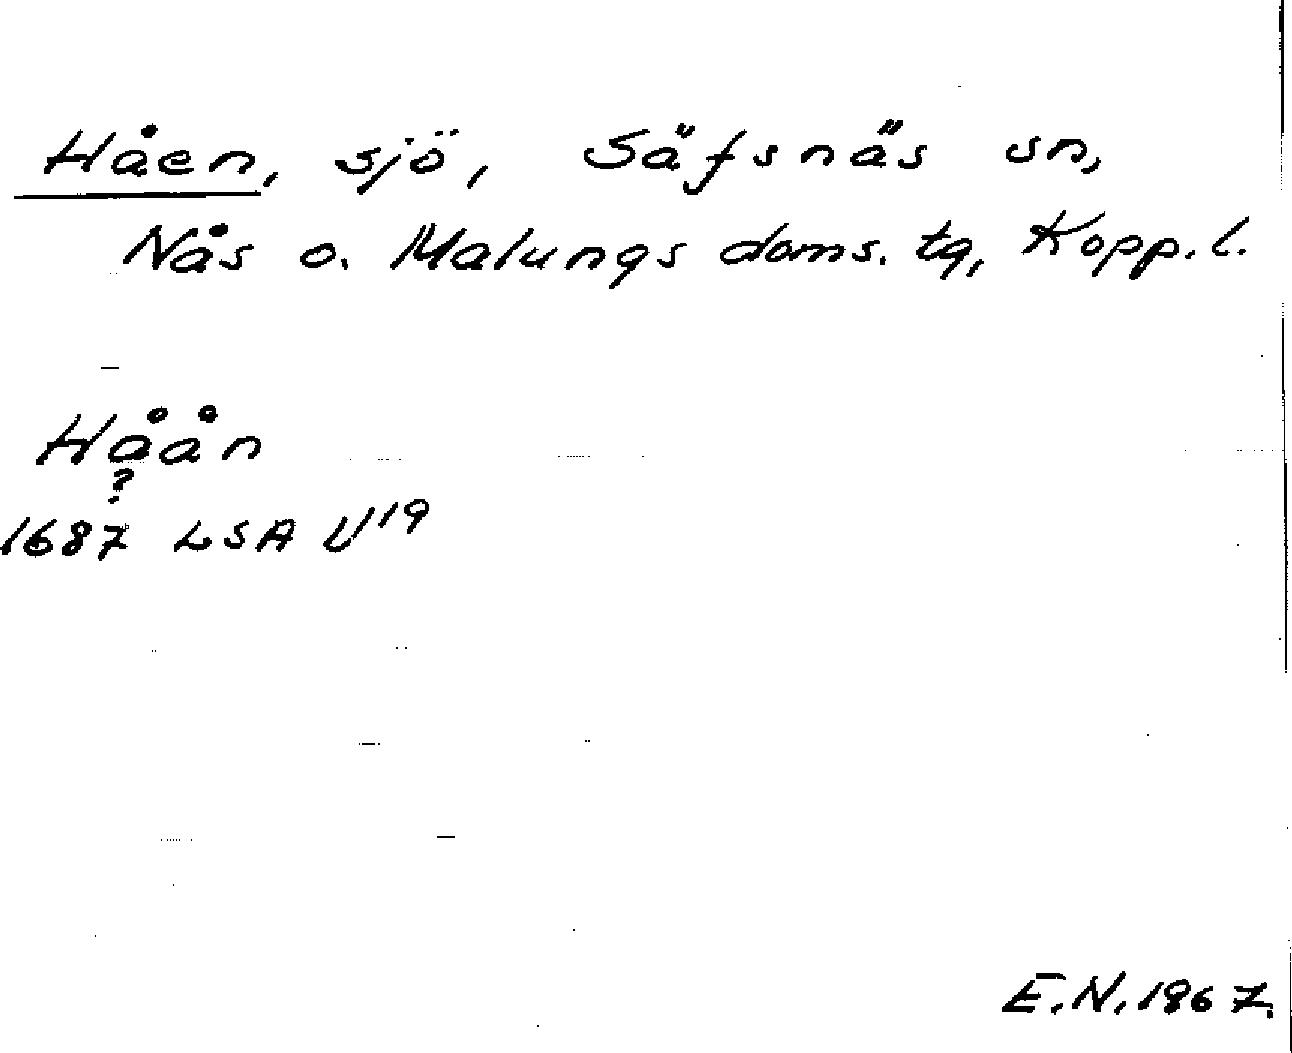 Håen, sjö, Säfsnäs sn,
Nås o. Malungs doms. tg, Kopp. l.
Håån
?
1687 LSA U19
E.N. 1967.